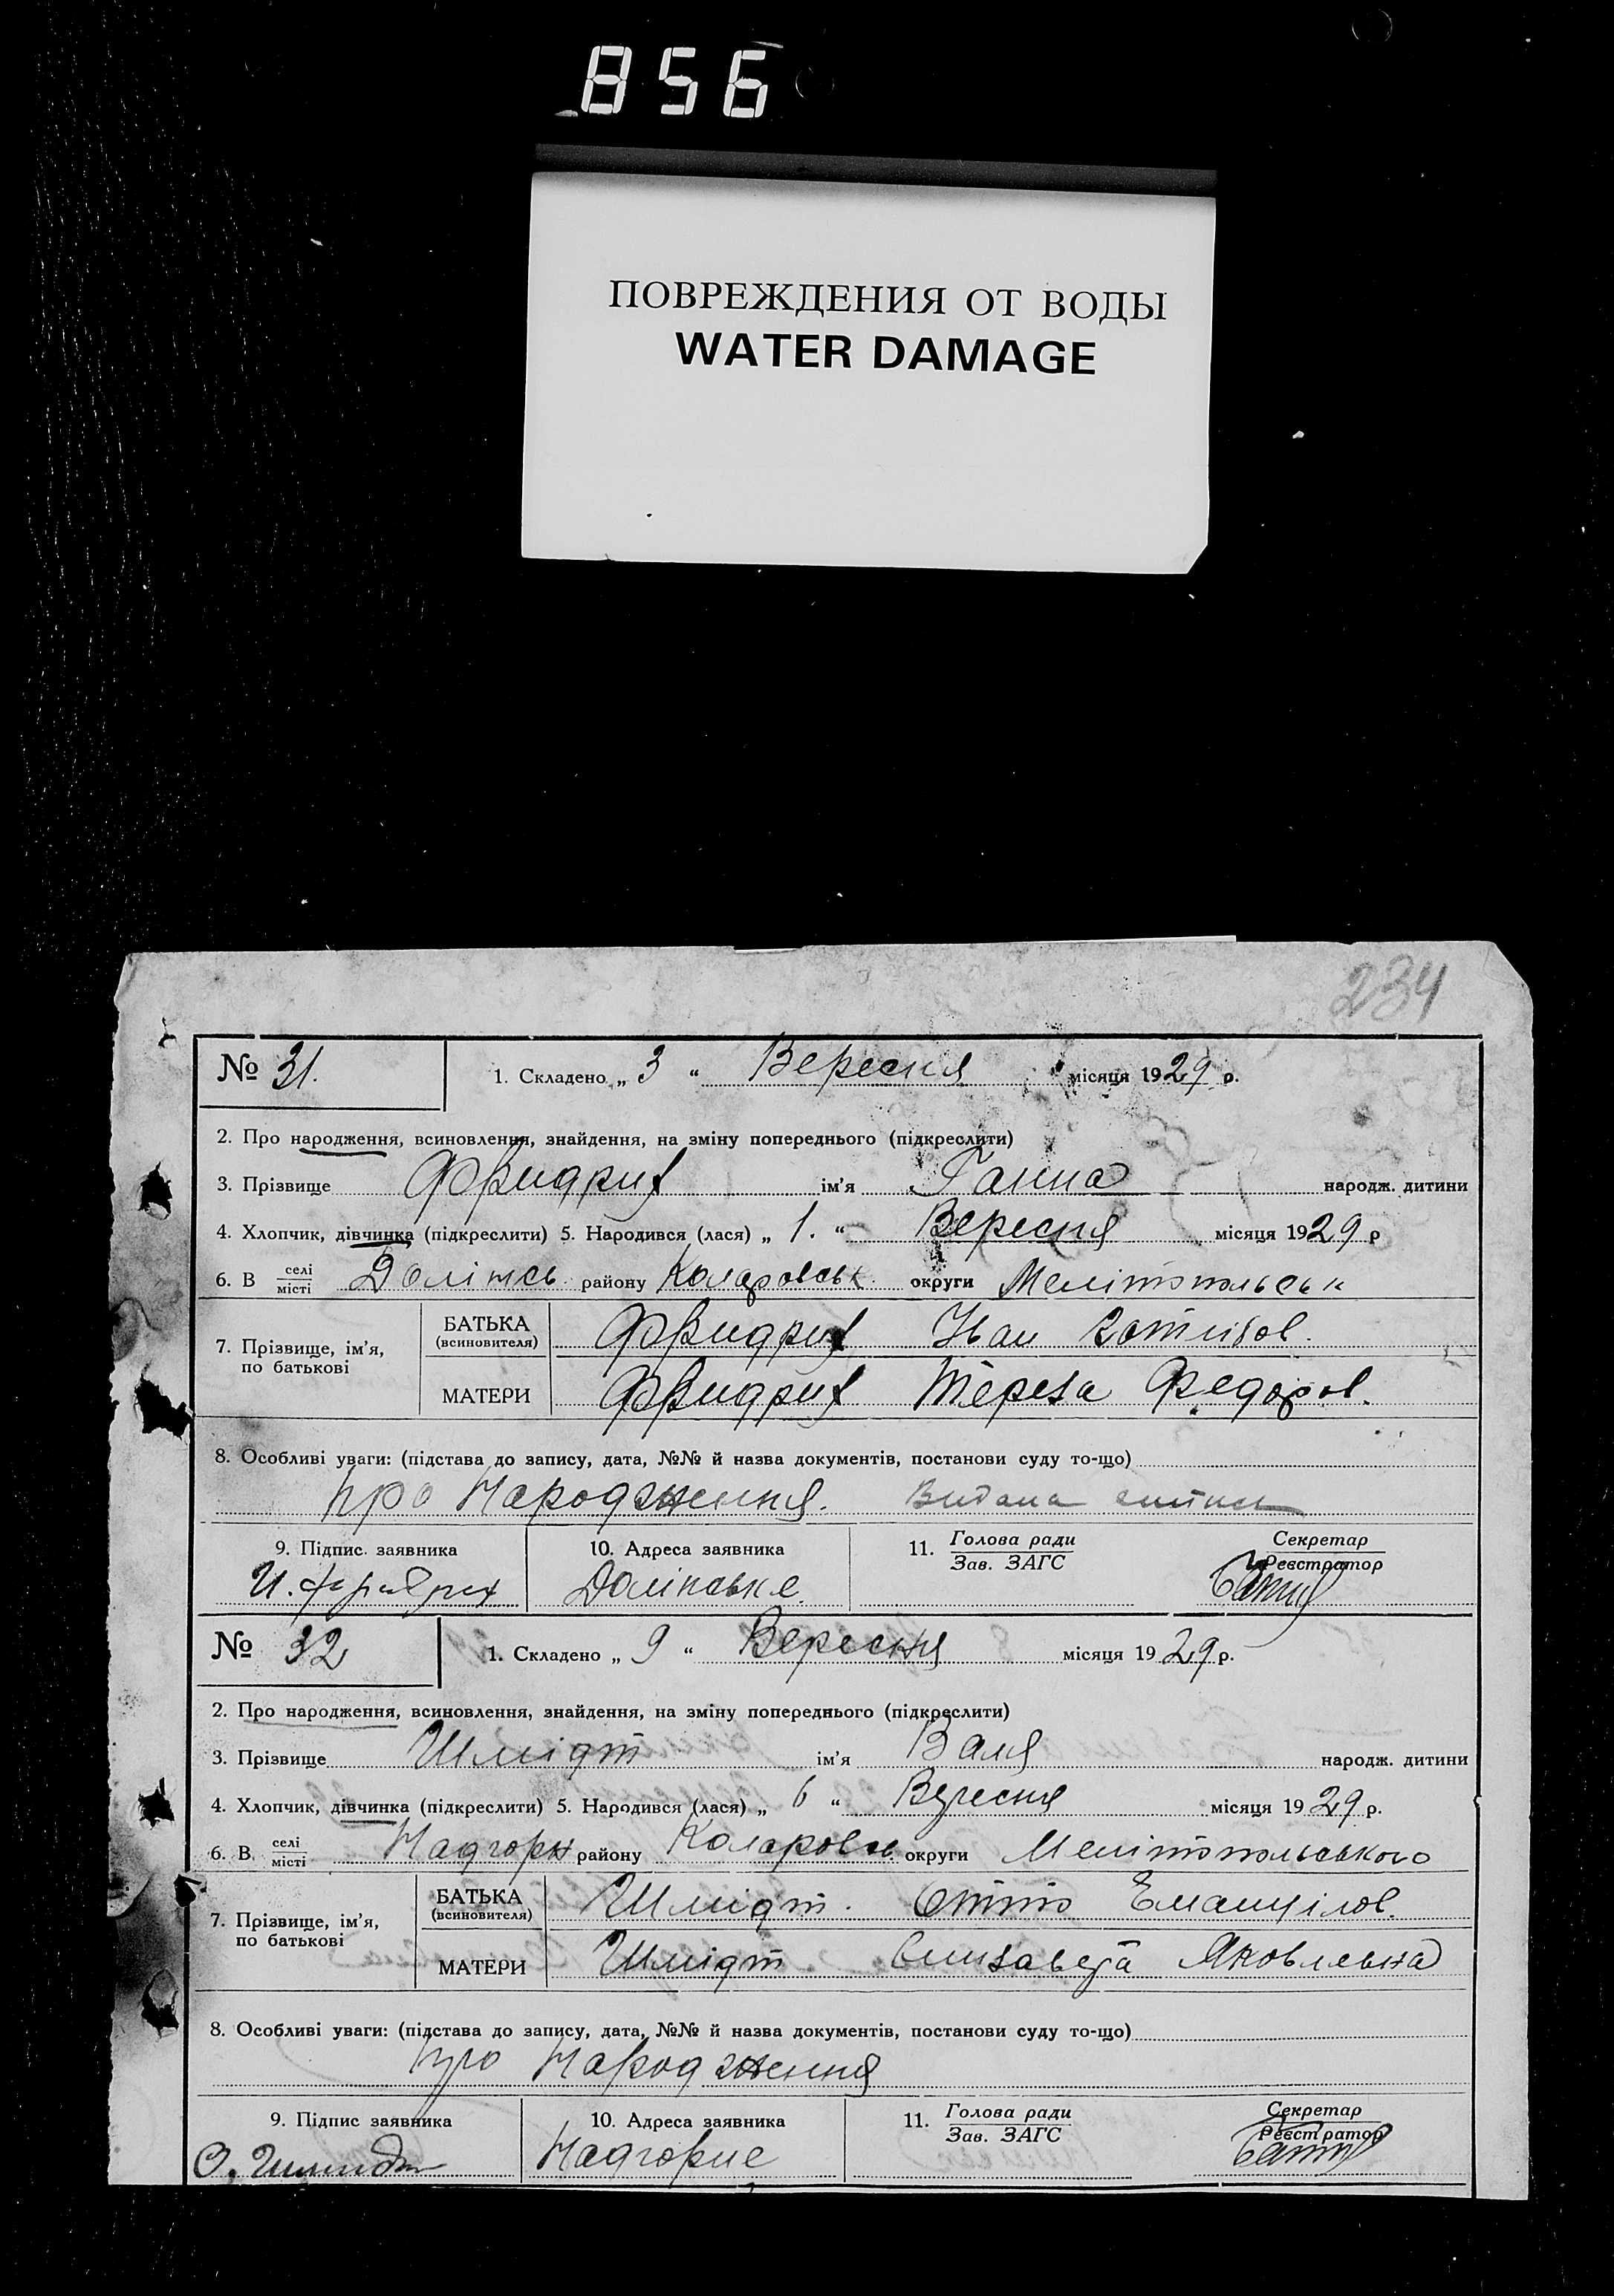 856
ПОВРЕЖДЕНИЯ ОТ ВОДЫ
WATER DAMAGE
234
№ 31. 1. Складено „ 3 “ Вересня місяця 1929 р.
2. Про народження, всиновлення, знайдення, на зміну попереднього (підкреслити)
3. Прізвище Фридрих ім'я Ганна народж. дитини
4. Хлопчик, дівчинка (підкреслити) 5. Народився (лася) „ 1. “ Вересня місяця 1929 р
6. В селі місті району Коларовськ округи Мелітопольськ
7. Прізвище, ім'я, по батькові БАТЬКА (всиновителя) Фридрих Іван Готлібов.
МАТЕРИ Фридрих Тереза Федоров.
8. Особливі уваги: (підстава до запису, дата, №№ й назва документів, постанови суду то-що)
про Народження. Видана
9. Підпис. заявника 10. Адреса заявника 11. Голова ради Зав. ЗАГС Секретар Реєстратор
И. Фридрих
№ 32 1. Складено „ 9 “ Вересня місяця 1929 р.
2. Про народження, всиновлення, знайдення, на зміну попереднього (підкреслити)
3. Прізвище Шмідт ім'я Валя народж. дитини
4. Хлопчик, дівчинка (підкреслити) 5. Народився (лася) „ 6 “ Вересня місяця 1929 р.
6. В селі місті Надгорн району округи Мелітопольського
7. Прізвище, ім'я, по батькові БАТЬКА (всиновителя) Шмідт. Отто Емануілов.
МАТЕРИ Шмідт Єлизавета Яковлевна
8. Особливі уваги: (підстава до запису, дата, №№ й назва документів, постанови суду то-що)
про Народження
9. Підпис заявника 10. Адреса заявника 11. Голова ради Зав. ЗАГС Секретар Реєстратор
О. Шмидт Надгорне